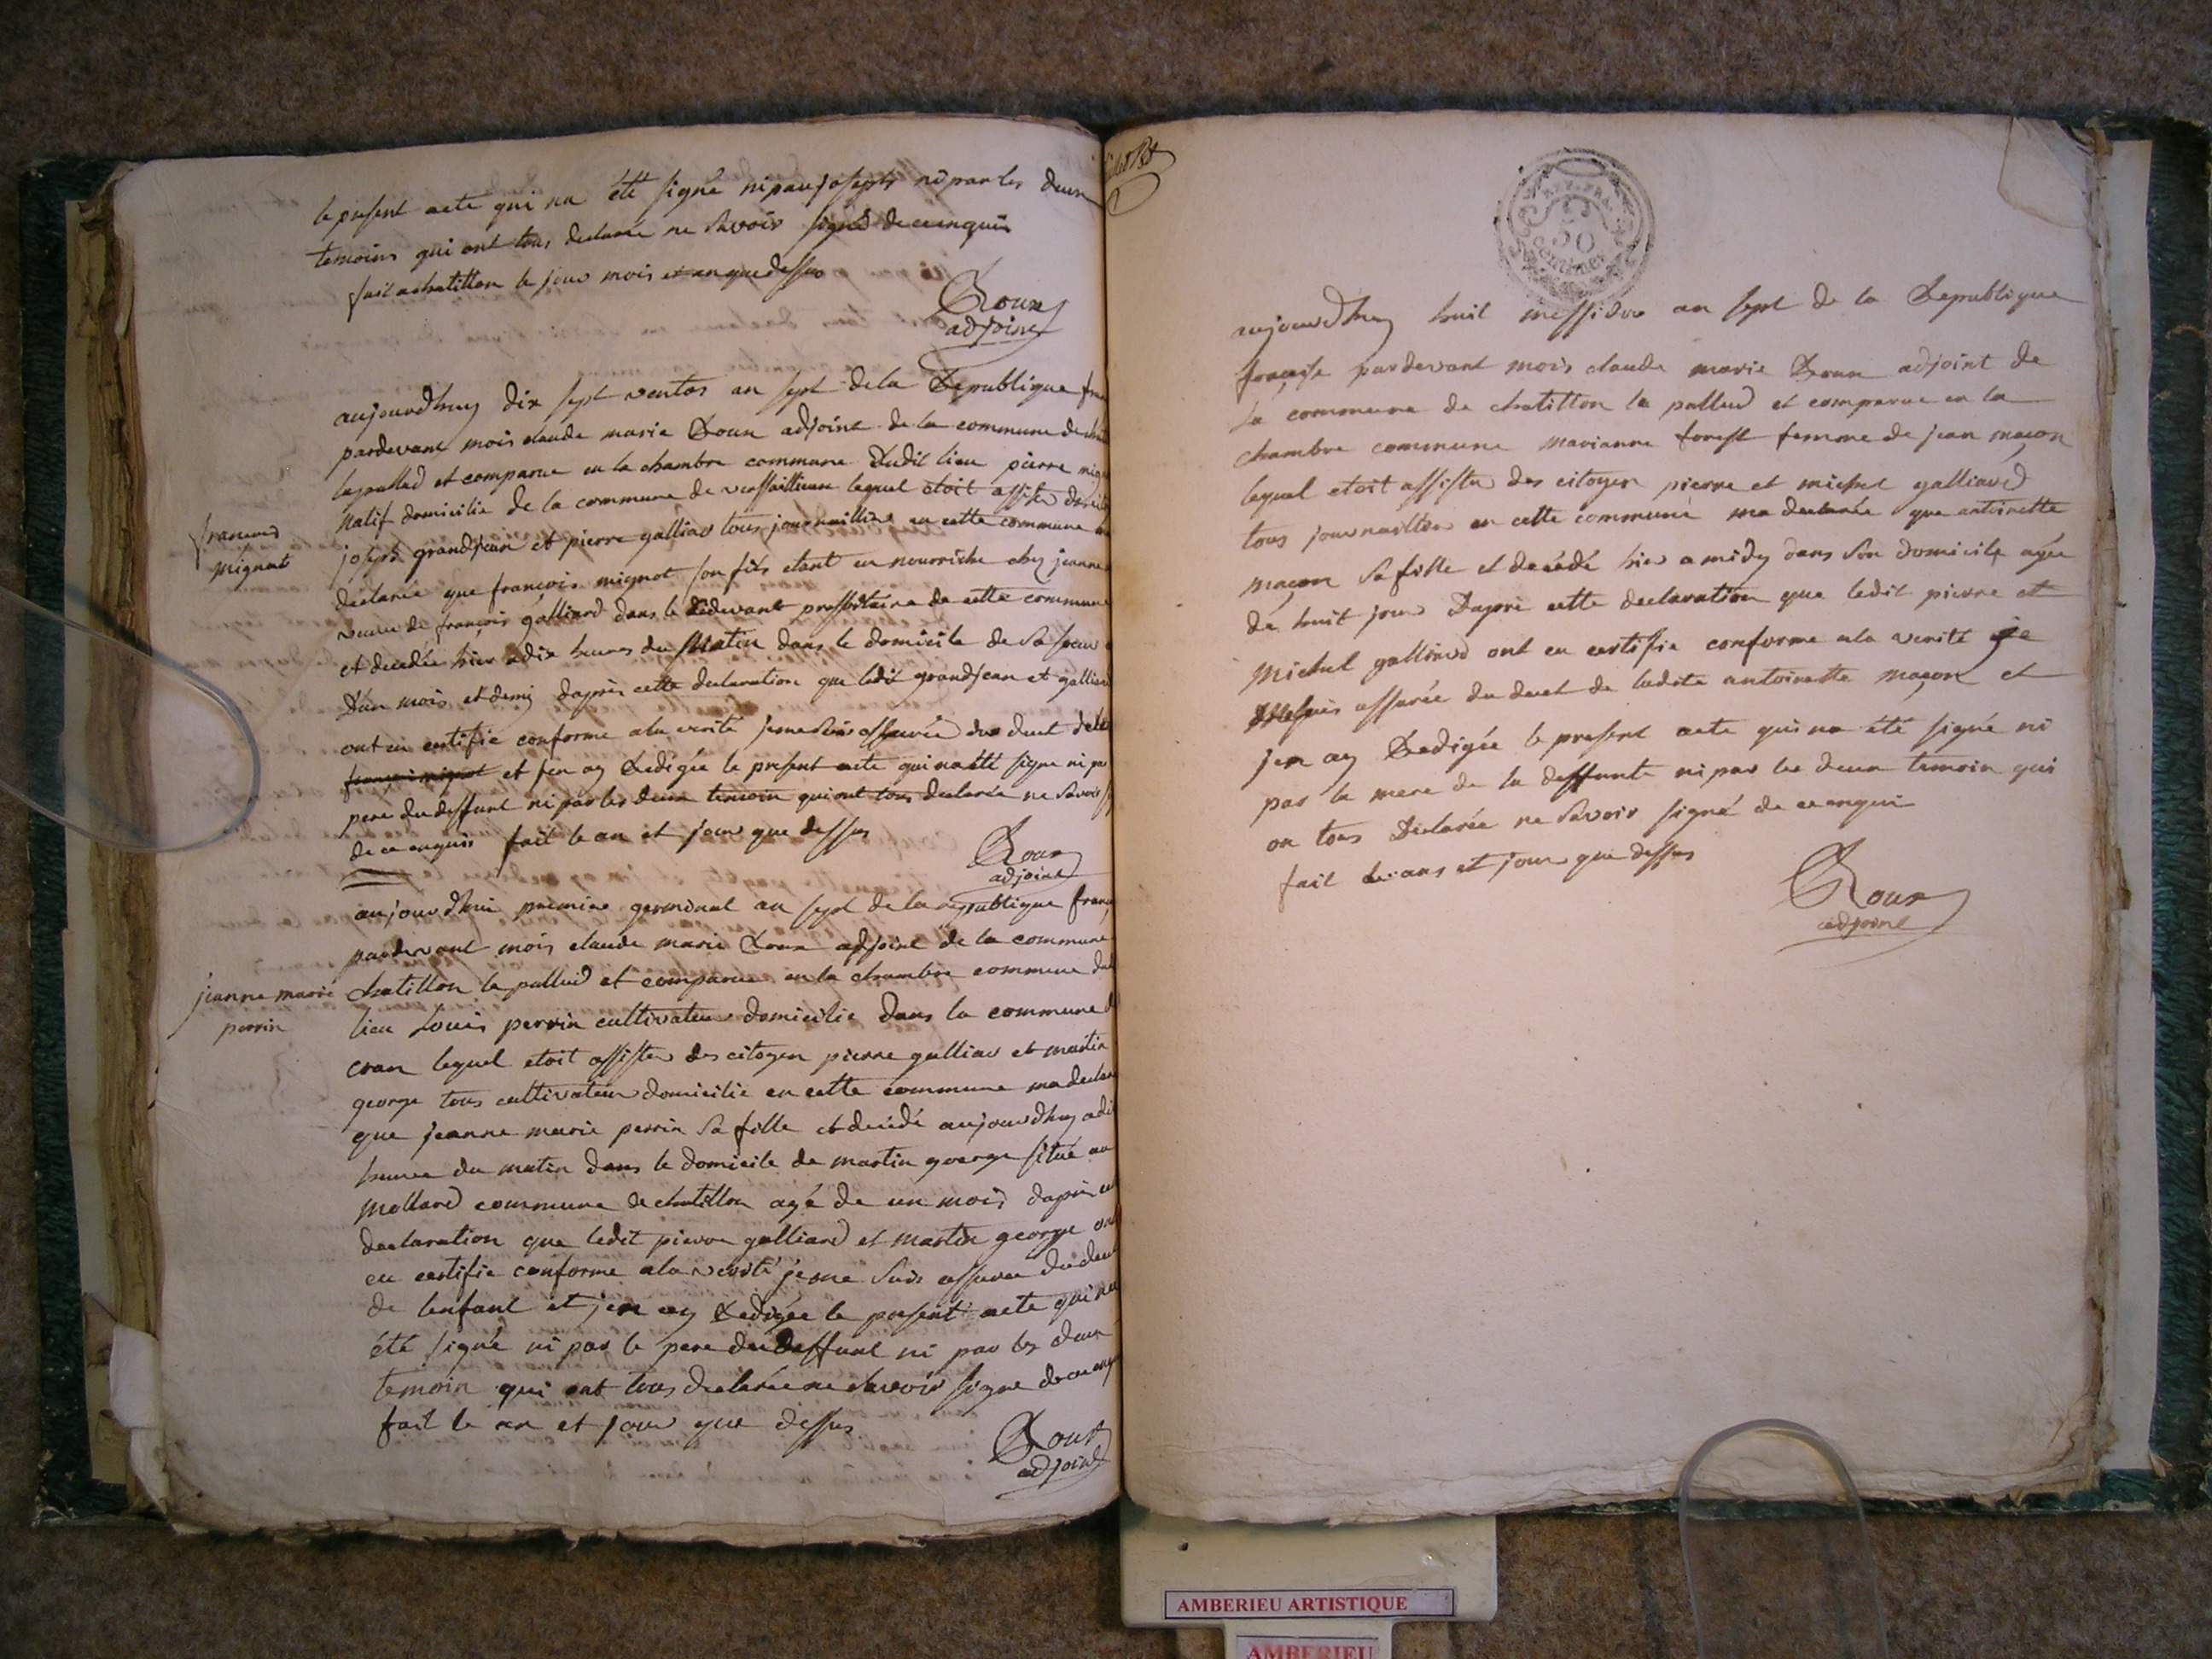 le present acte qui na été signé ni par joseph ni par les deux
temoins qui ont tous declarée ne savoir signé de ce enquis
fait a chatillon le jour mois et an que dessus
Roux
adjoint
aujourdhuy dix sept ventos an sept de la Republique
pardevant mois claude marie Roux adjoint de la commune de
lapallud et comparue en la chambre commune dudit lieu pierre
natif domicilie de la commune de versaillieux lequel etoit assister
joseph grandjean et pierre galliar tous journaillier en cette commune
declarée que francois mignot son fils etant en nourriche chez jeanne
veuve de françois galliard dans le cidevant presbitaire de cette commune
et decedée hier a dix heures du Matin dans le domicile de sa
Dun mois et demi dapres cette declaration que ledit grandjean et galliard
ont en certifie conforme ala verité je me suis assurée du deces
et jen ay Redigée le present acte qui na été signe ni
pere du deffunt ni par les deux temoin qui ont tous declarée ne savoir
de ce enquis fait le an et jour que dessus
Roux
adjoint
francois
mignot
aujourdhui premier germinal an sept de la republique
pardevant mois claude marie Roux adjoint de la commune
chatillon la pallud et comparue en la chambre commune
lieu Louis perrin cultivateur domicilie dans la commune
cran lequel etoit assister des citoyen pierre galliar et martin
george tous cultivateur domicilie en cette commune ma
que jeanne marie perrin sa fille et decédé aujourdhuy
heures du matin dans le domicile de martin george situé au
Mollard commune de chatillon agé de un mois dapres
declaration que ledit pierre galliard et martin george
en certifie conforme ala verité je me suis assurée du
de lenfant et jen ay Redigée le present acte qui
été signé ni par le pere du deffunt ni par les deux
temoin qui ont tous declarée ne savoir signe de ce
fait le an et jour que dessus
Roux
adjoint
jeanne marie
perrin
REP. FRA.
50
centimes
aujourdhuy huit messidor an sept de la Republique
française pardevant mois claude marie Roux adjoint de
la commune de chatillon la pallud et comparue en la
chambre commune marianne forest femme de jean maçon
lequel etoit assister des citoyen pierre et michel galliard
tous journaillier en cette commune ma declarée que antoinette
maçon sa fille et decédé hier a midy dans son domicile agée
de huit jour Dapré cette declaration que ledit pierre et
Michel galliard ont en certifie conforme ala verité je
assurée du decet de ladite antoinette maçon et
jen ay Redigée le present acte qui na été signé ni
par la mere de la deffunte ni par les deux temoin qui
on tous Declarée ne savoir signé de ce enqui
fait ans et jour que dessus
Roux
adjoint
AMBERIEU ARTISTIQUE
AMBERIEU